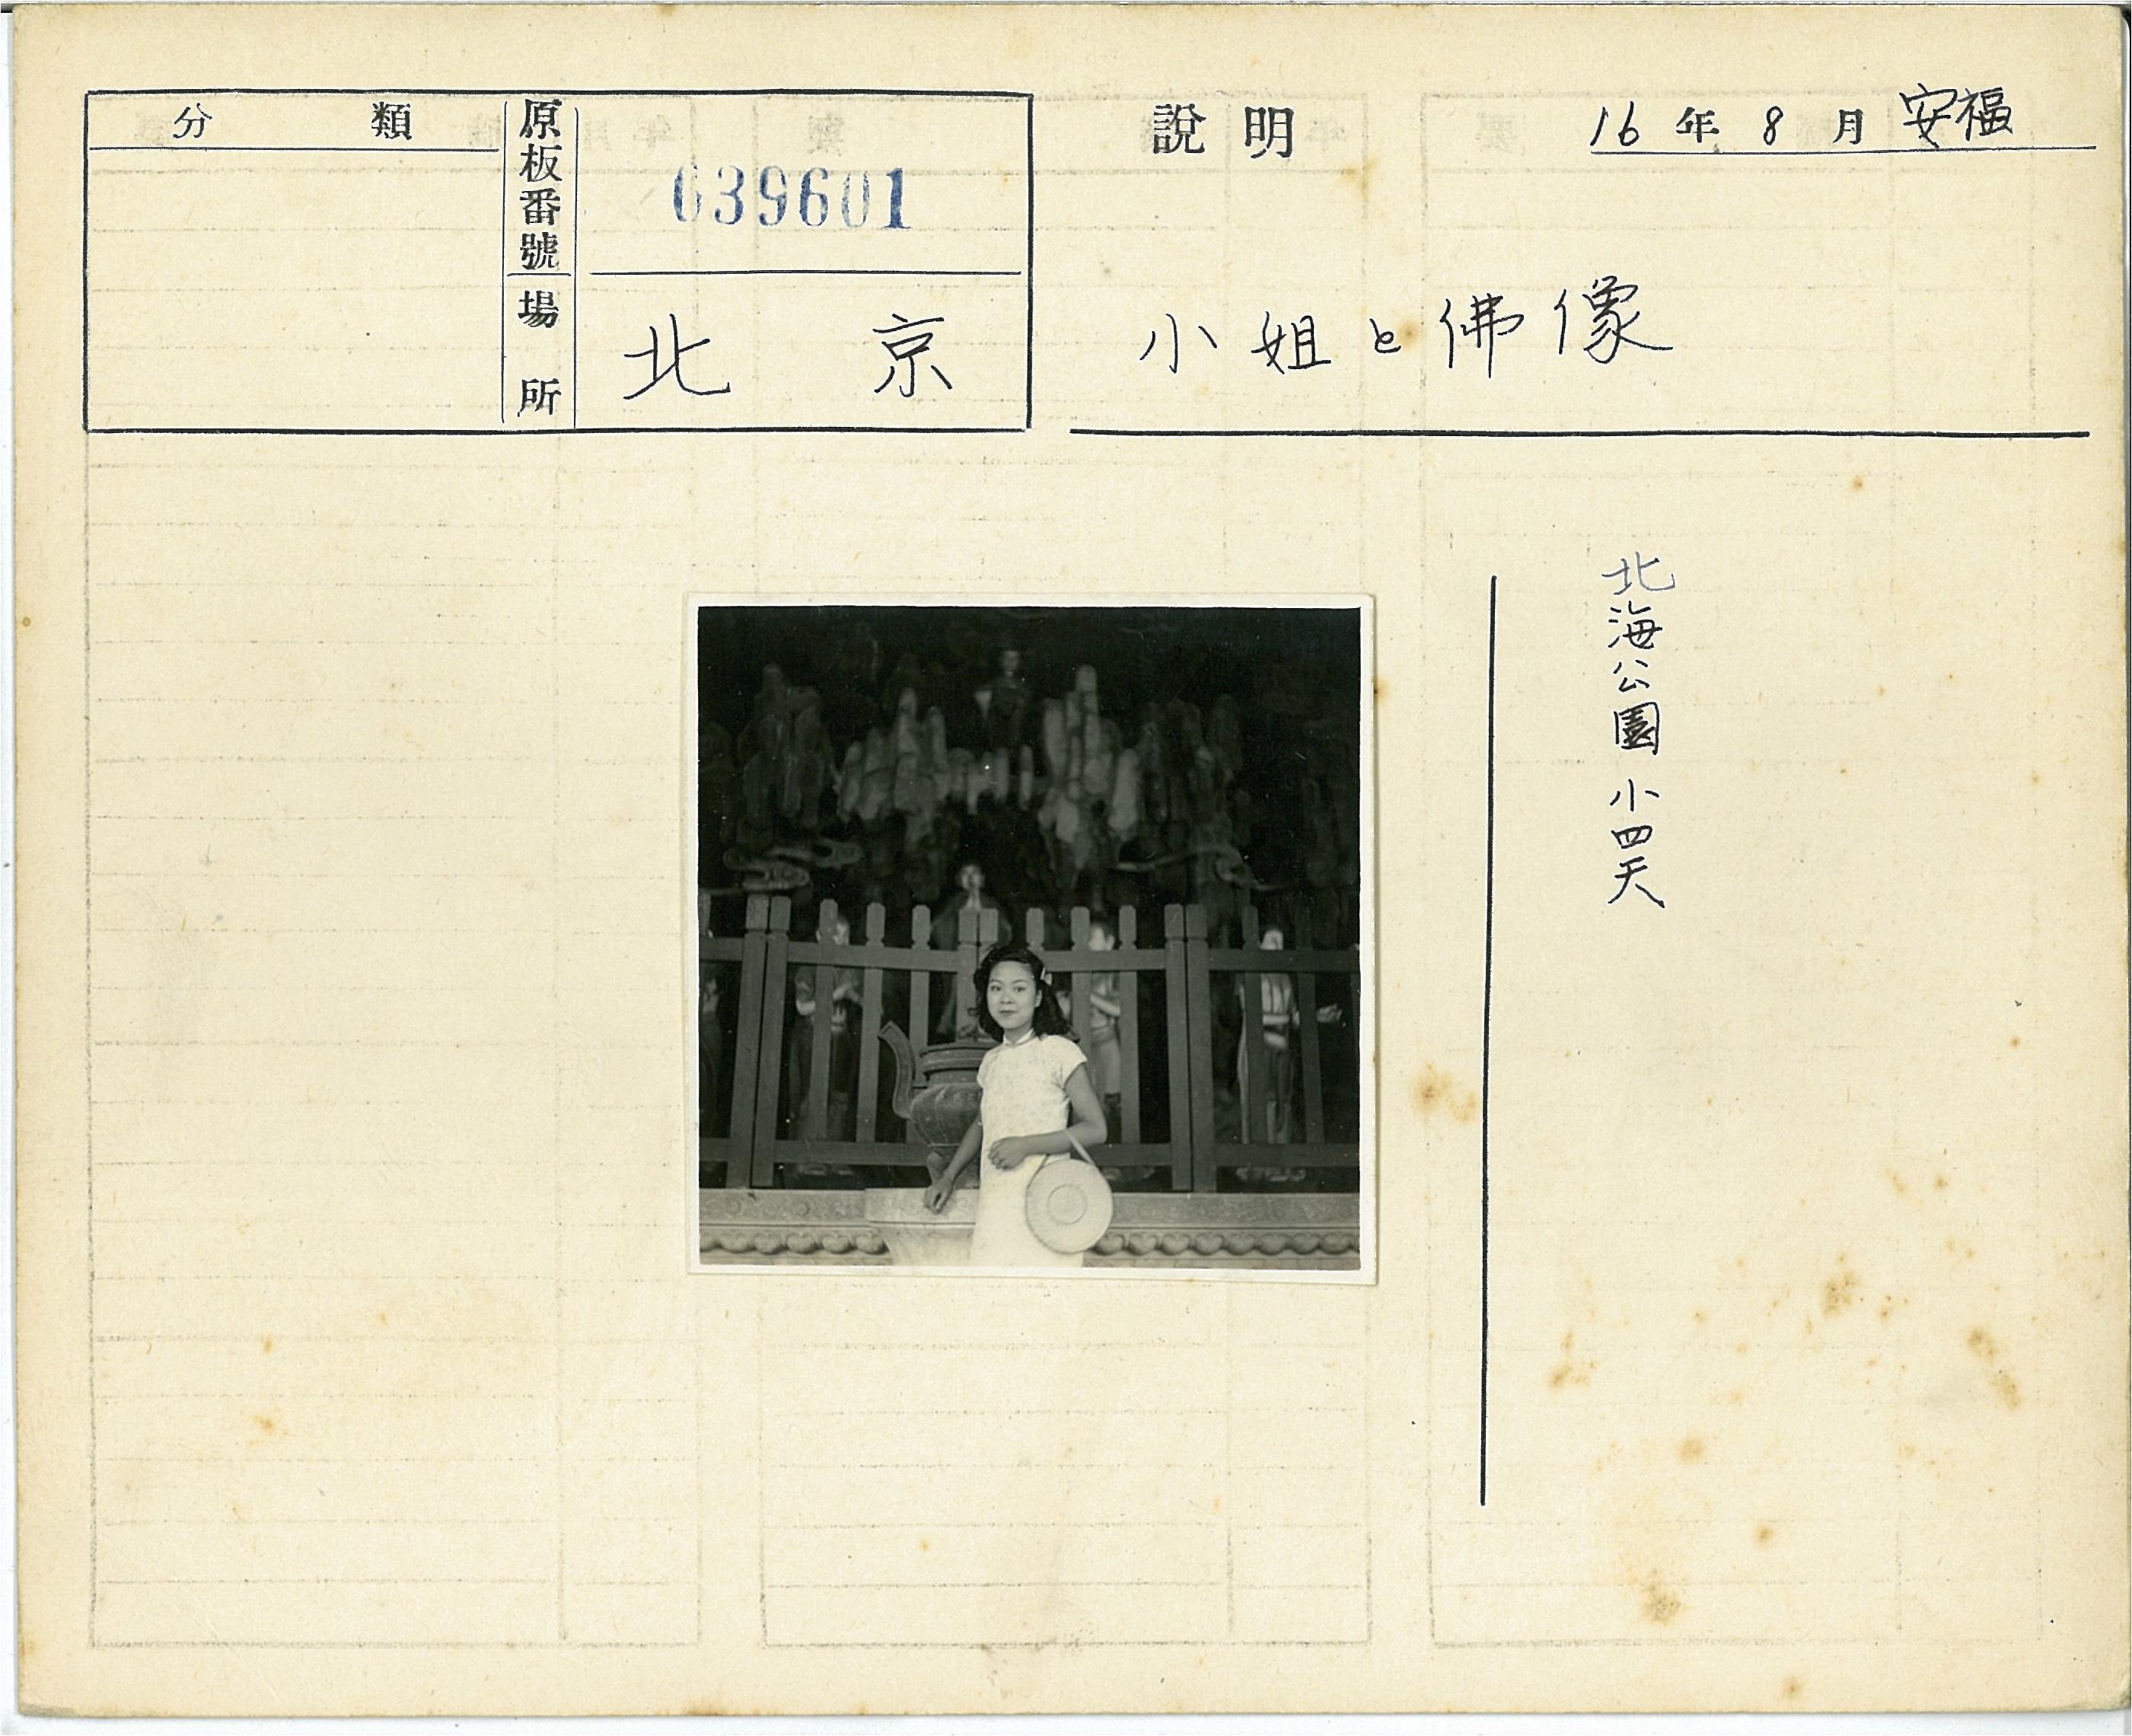 分類
原板番號
639601
場所
北京
說明
16年8月 安福
小姐と佛像
北海公園 小四天